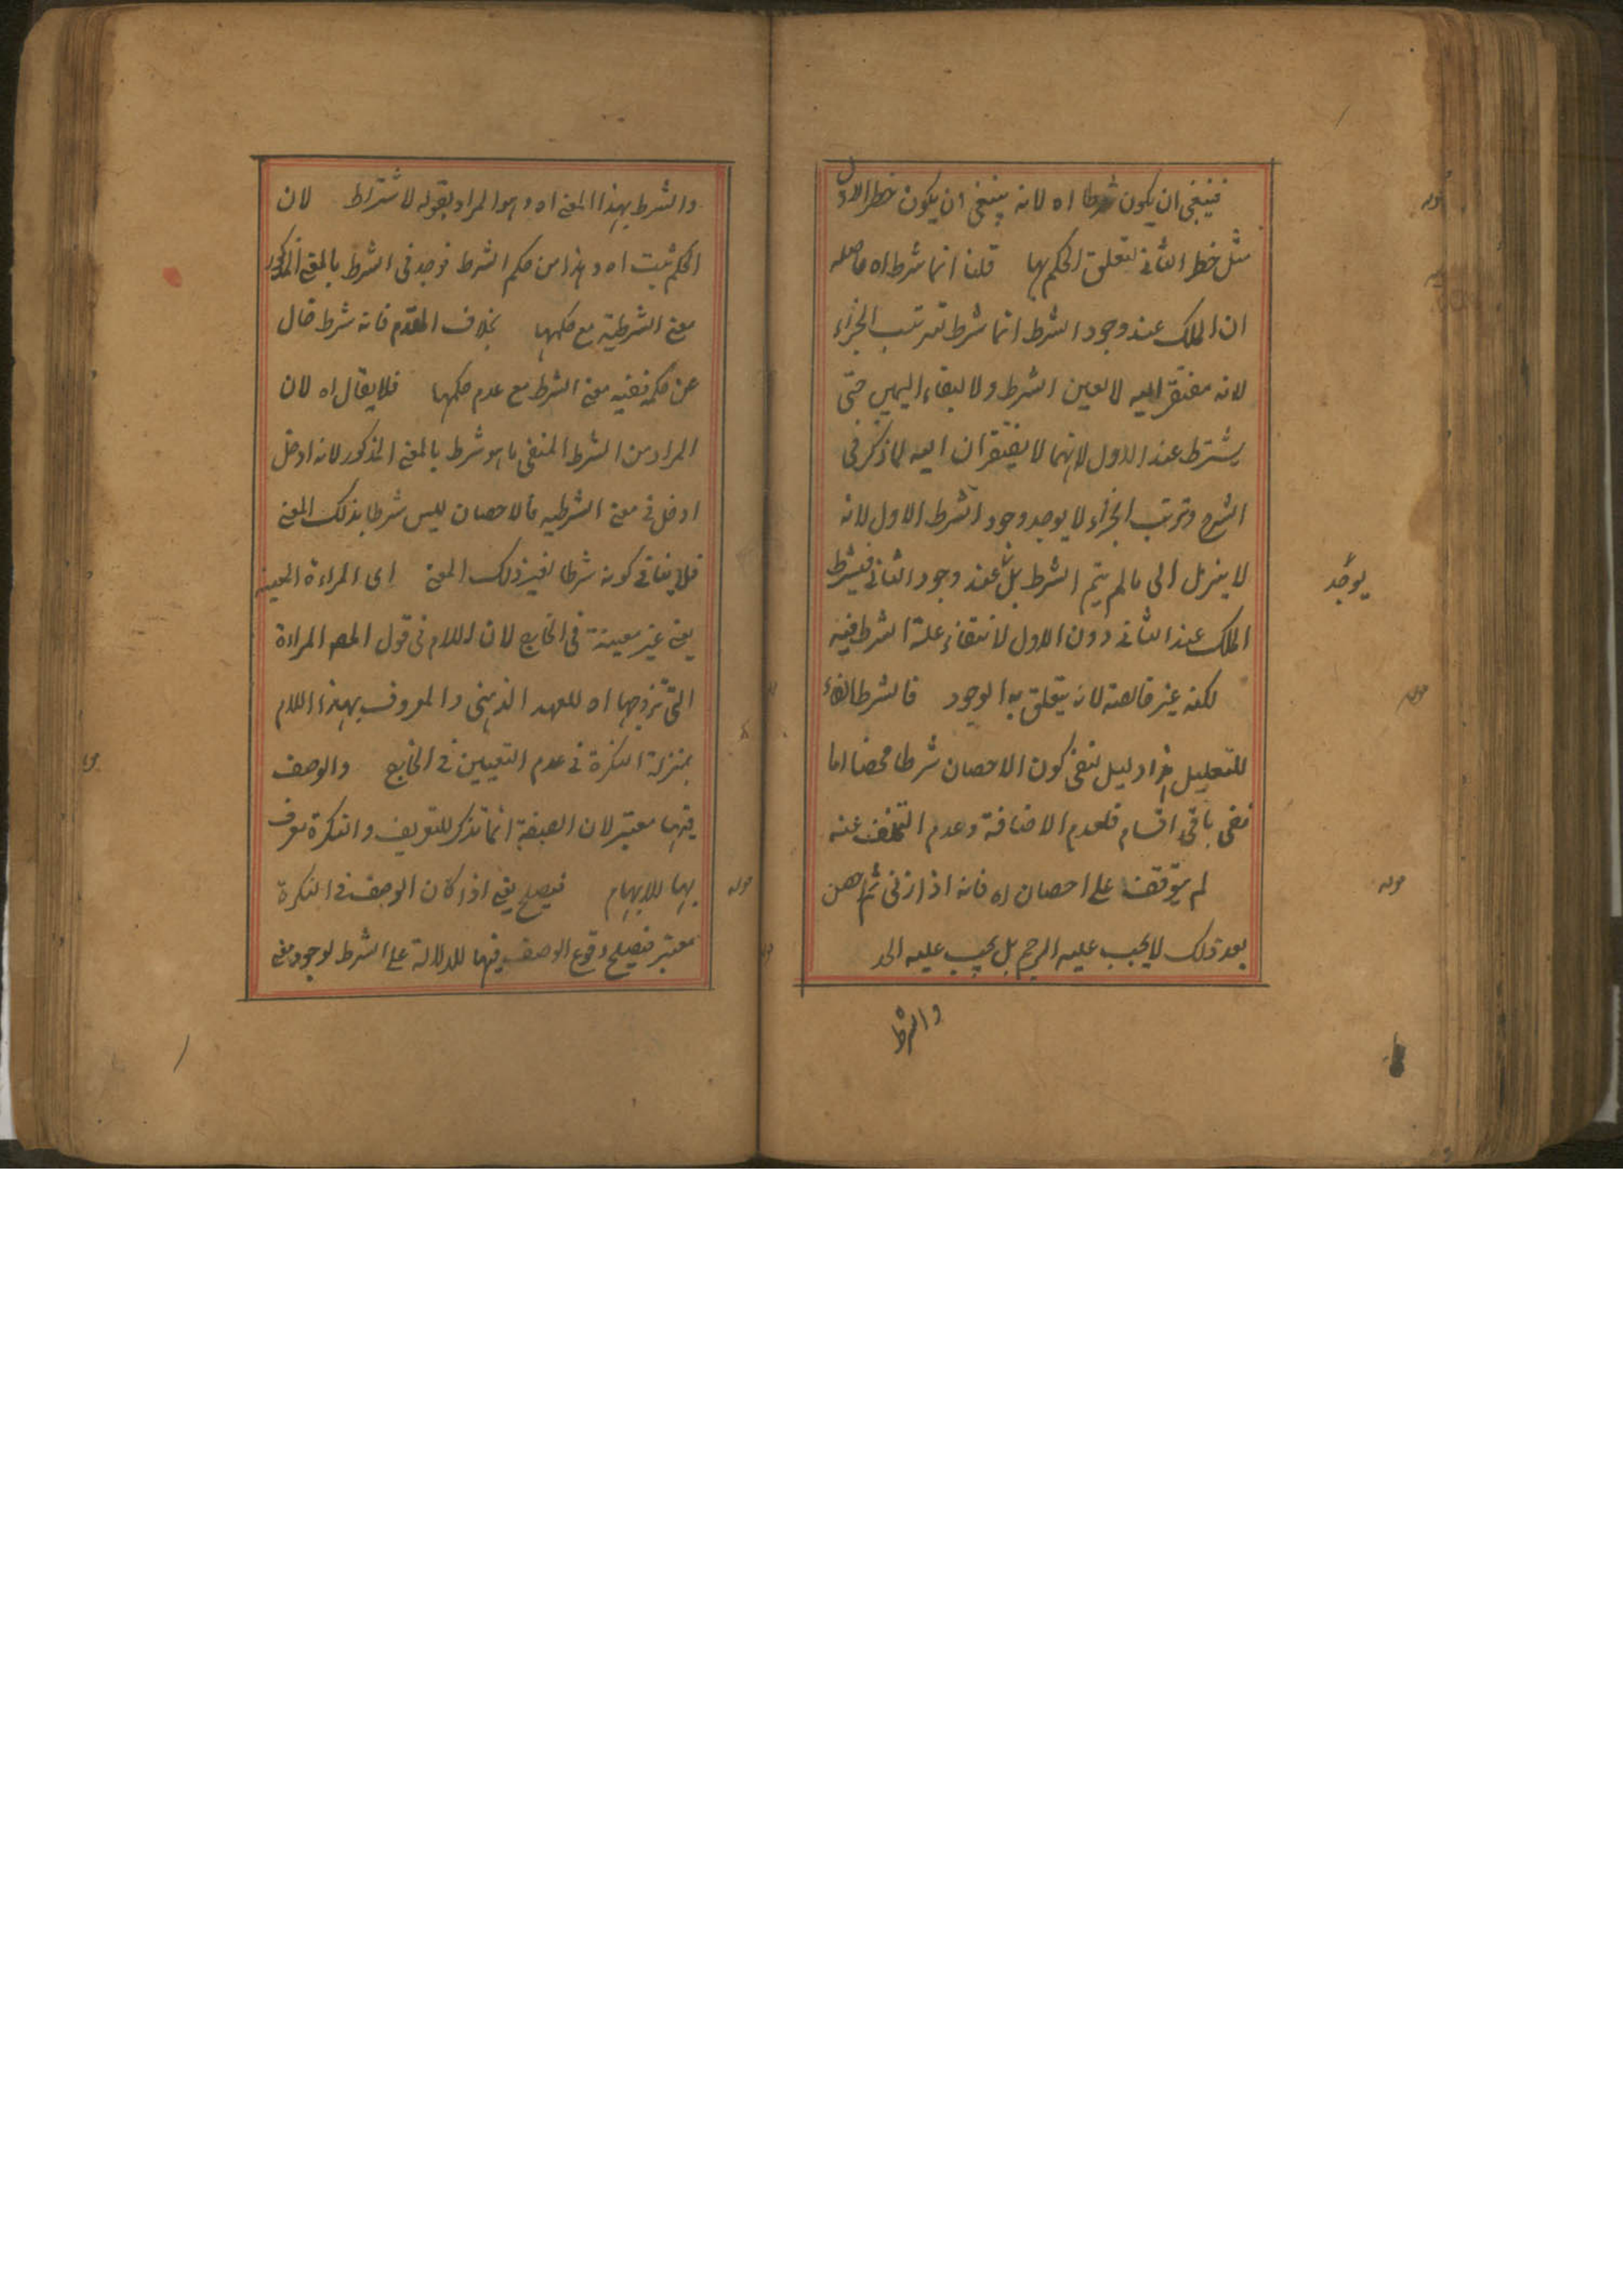 فينبغى ان يكون شرطا اه لانه ينبغى ان يكون خطر الاول
مثل خطر الثانى لتعلق الحكم بها قلنا انما شرط اه حاصله
ان الملك عند وجود الشرط انما شرط ترتب الجزاء
لانه مفتقر اليه لا لعين الشرط ولا لبقاء اليمين حتى
يشترط عند الاول لانهما لا يفتقران اليه لما ذكر فى
الشرح وترتب الجزاء لا يوجد وجود الشرط الاول لانه
لا ينزل الى ما لم يتم الشرط بل عند وجود الثانى فيشترط
الملك عند الثانى دون الاول لانتفاء علة الشرط فيه
لكنه غير خالصة لان يتعلق به الوجود فالشرط
للتعليل هذا دليل نفى كون الاحصان شرطا محضا اما
نفى باقى اقسام فلعدم الاضافة وعدم التخلف عنه
لم يتوقف على احصان اه فانه اذا زنى ثم احصن
بعد ذلك لا يجب عليه الرجم بل يجب عليه الحد
والشرط
يوجد
قوله
قوله
والشرط بهذا المعنى اه وهو المراد بقوله لاشتراط لان
الحكم ثبت اه وهذا من حكم الشرط فوجد فى الشرط بالمعنى المذكور
معنى الشرطية مع حكمها بخلاف المقدم فانه شرط خال
عن حكمه ففيه معنى الشرط مع عدم حكمها فلا يقال اه لان
المراد من الشرط المنفى ما هو شرط بالمعنى المذكور لانه ادخل
ادخل فى معنى الشرطية فالاحصان ليس شرطا بذلك المعنى
فلا ينافى كونه شرطا لغير ذلك المعنى اى المراءة المعينة
يعنى غير معينة فى الخارج لان اللام فى قول المص المراءة
التى تزوجها اه للعهد الذهنى والمعروف بهذا اللام
بمنزلة النكرة فى عدم التعيين فى الخارج والوصف
فيها معتبر لان الصفة انما تذكر للتعريف والنكرة تعرف
بها للابهام فيصلح يعنى اذا كان الوصف فى النكرة
معتبر فيصلح وقوع الوصف فيها للدلالة على الشرط لوجود معنى
قوله